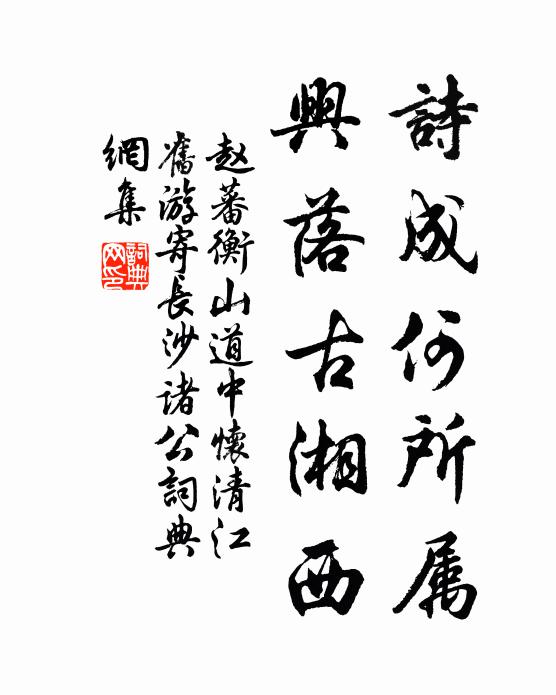 詩成何所属
興落古湘西
赵蕃衡山道中懷清江
舊游寄長沙诸公詞典
網集
詞典
网印